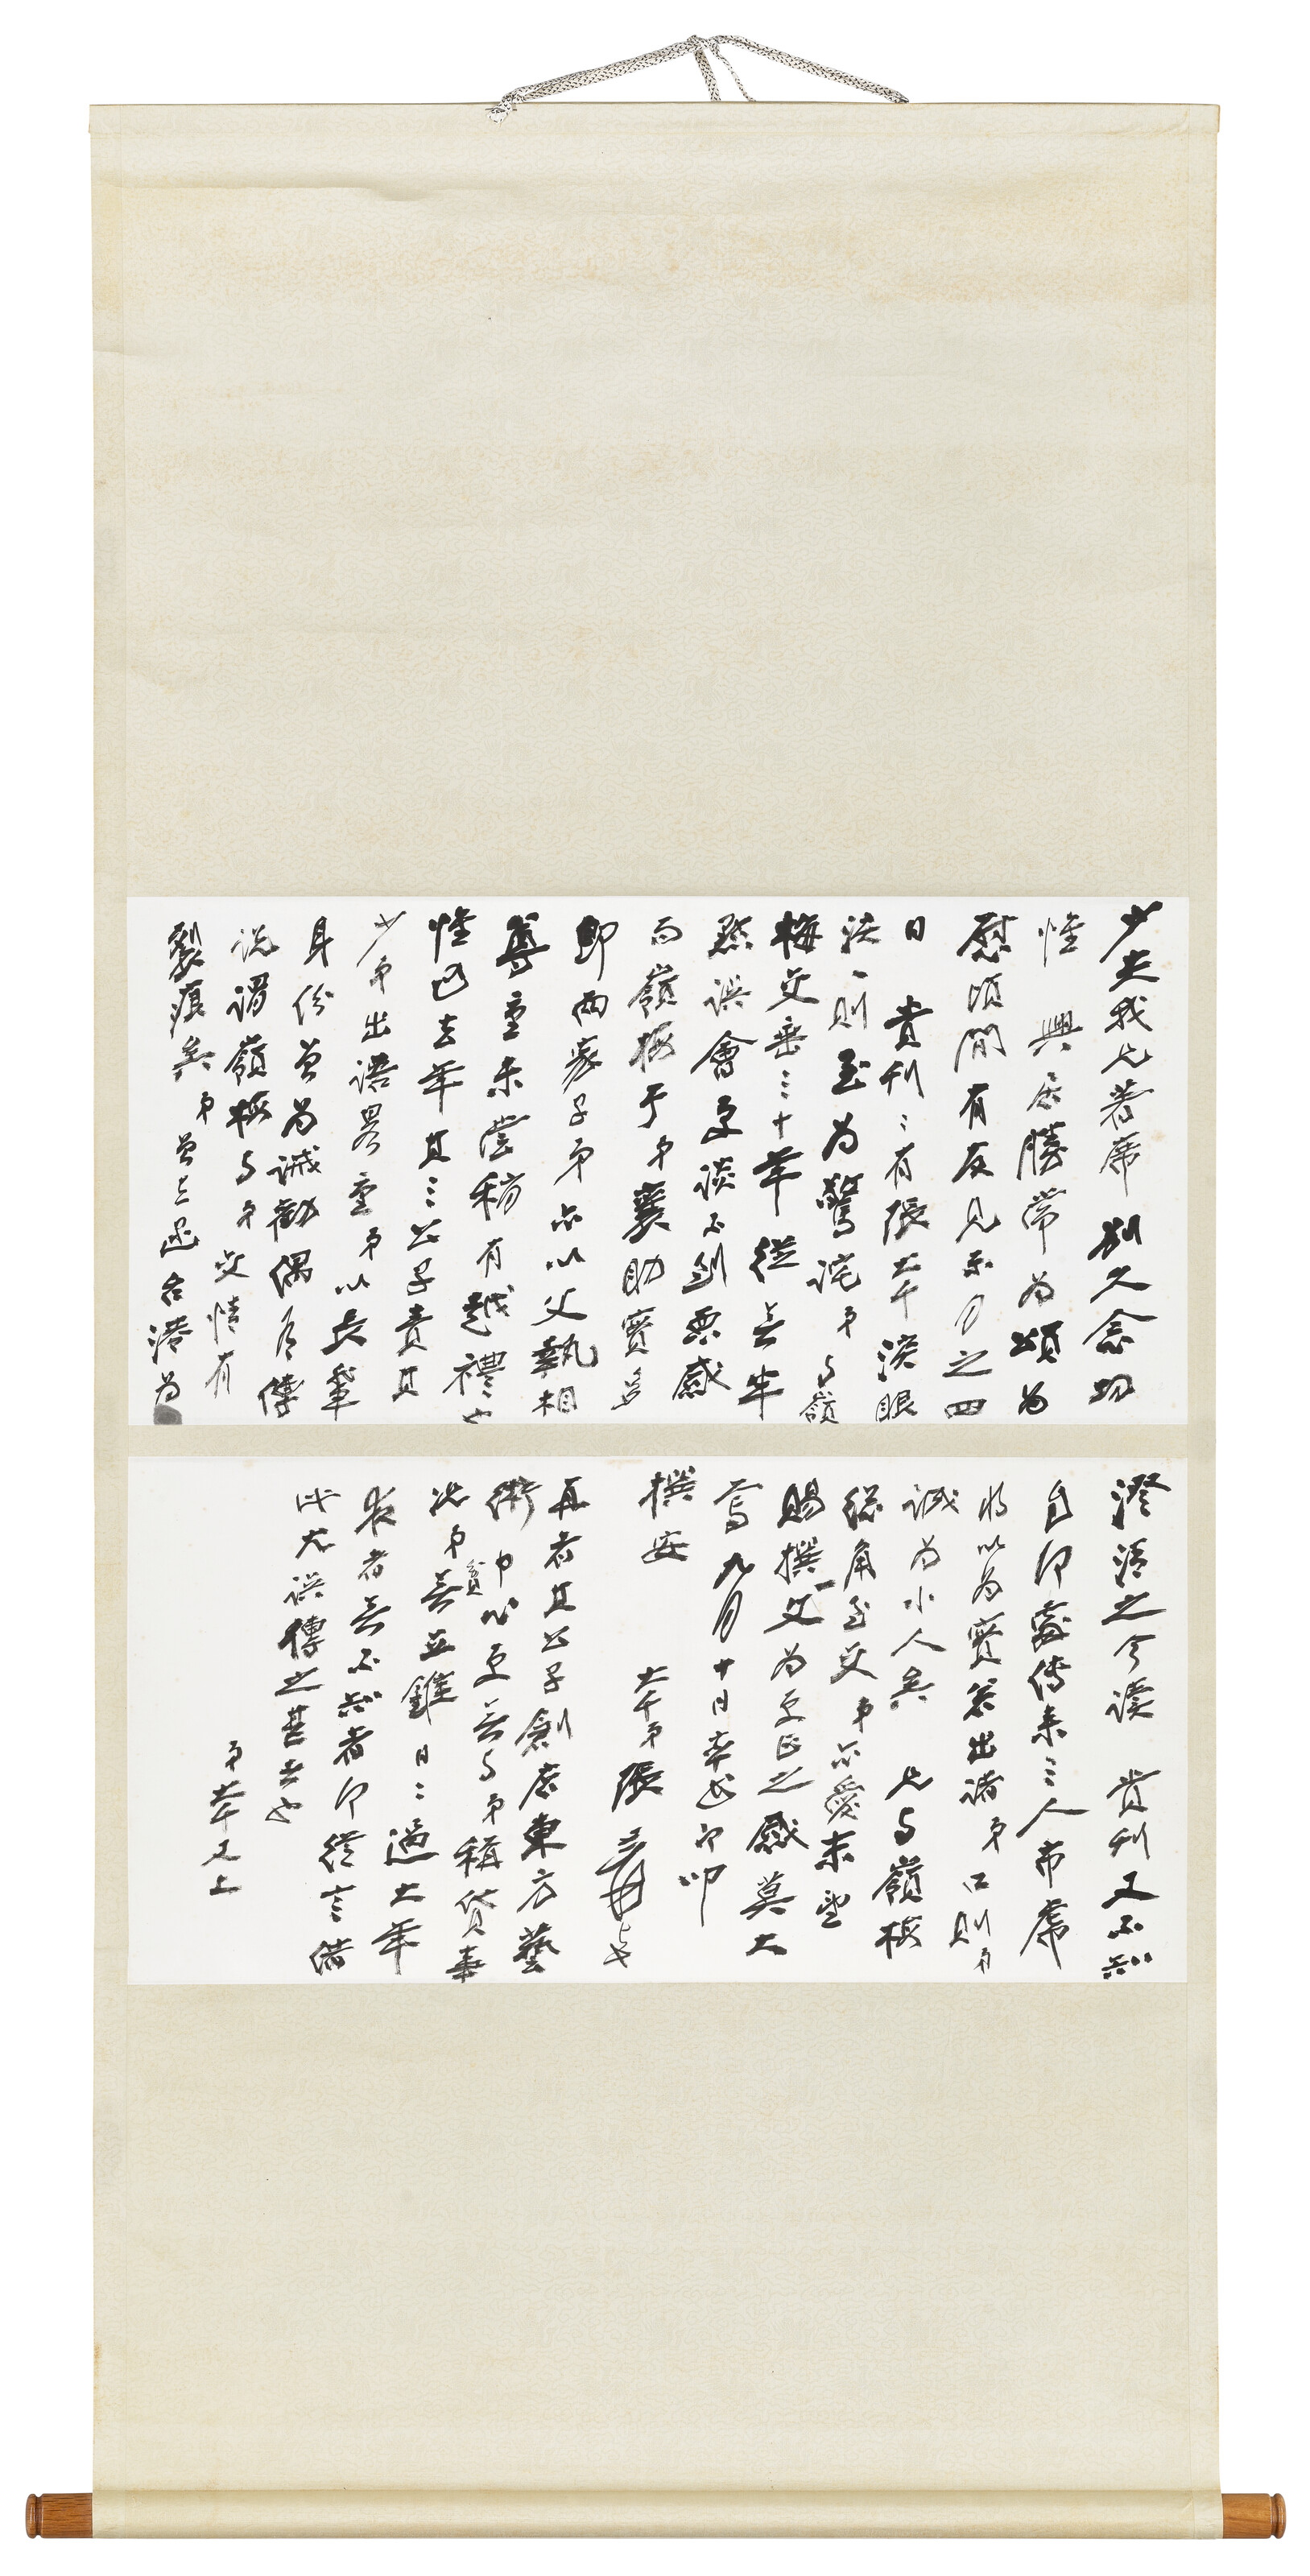 少夫我兄著席別久念切
惟興居勝常為頌為
慰頃間有友見示月之四
日貴刊刊有張大千淚眼
法則至為驚詫弟與嶺
梅交垂垂三十年從無半
點誤會更談不到惡感
而嶺梅于弟襄助實多
即兩家子弟亦以父執相
尊重未嘗稍有越禮也
惟以去年其三公子責其
少弟出語畧重弟以長輩
身份曾為誡勸偶有傳
說謂嶺梅與弟交情有
裂痕矣弟曾上函台港為
澄清之今讀貴刊又不知
自何處傳來三人市虎
將以為實若出諸弟口則弟
誠為小人矣兄與嶺梅
總角至交弟亦愛末望
賜撰文為更正之感莫大
焉九月十日率此即叩
撰安
大千弟張爰
再者其公子創店東方藝
術中心更無與弟稱貸事
況弟貧無立錐日日過大年
夜者無不知者即從言借
此尤誤傳之甚者也
弟大千又上